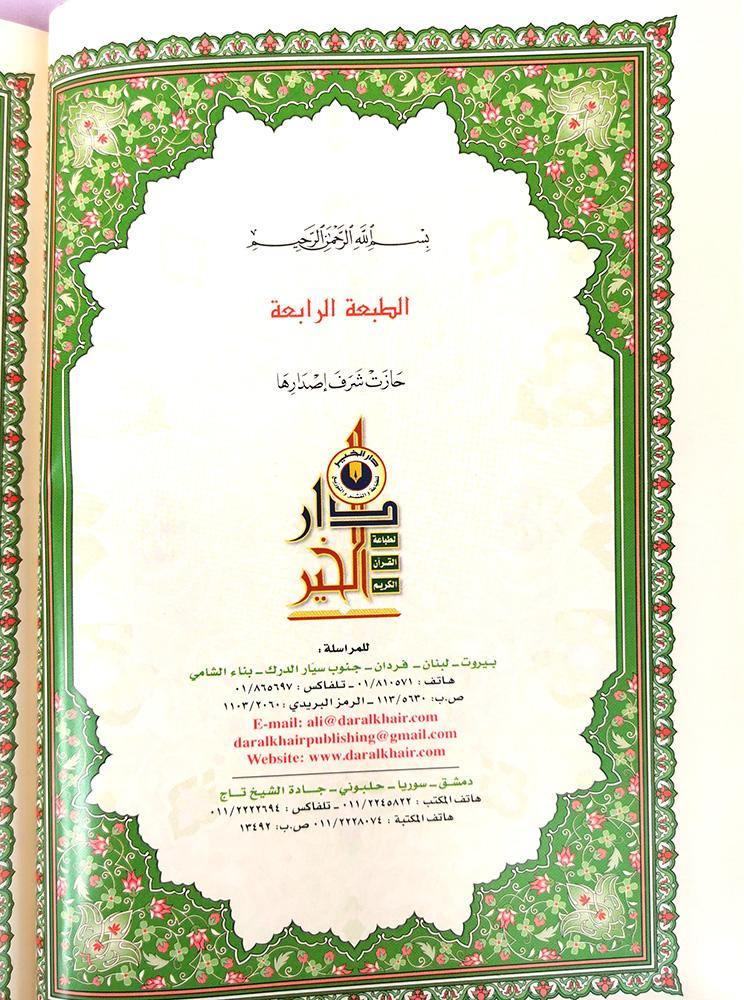 بِسْمِ اللَّهِ الرَّحْمَٰنِ الرَّحِيمِ
الطبعة الرابعة
حَازَتْ شَرَفَ إِصْدَارِهَا
دار الخير
للطباعة والنشر والتوزيع
دار
الخير
لطباعة
القرآن
الكريم
للمراسلة :
بيروت - لبنان - فردان - جنوب سيّار الدرك - بناء الشامي
هاتف : ٠١/٨١٠٥٧١ - تلفاكس : ٠١/٨٦٥٦٩٧
ص.ب: ١١٣/٥٦٣٠ - الرمز البريدي : ١١٠٣/٢٠٦٠
E-mail: ali@daralkhair.com
daralkhairpublishing@gmail.com
Website: www.daralkhair.com
دمشق - سوريا - حلبوني - جادة الشيخ تاج
هاتف المكتب : ٠١١/٢٢٤٥٨٢٢ - تلفاكس : ٠١١/٢٢٢٢٦٩٤
هاتف المكتبة : ٠١١/٢٢٢٨٠٧٤ ص.ب: ١٣٤٩٢